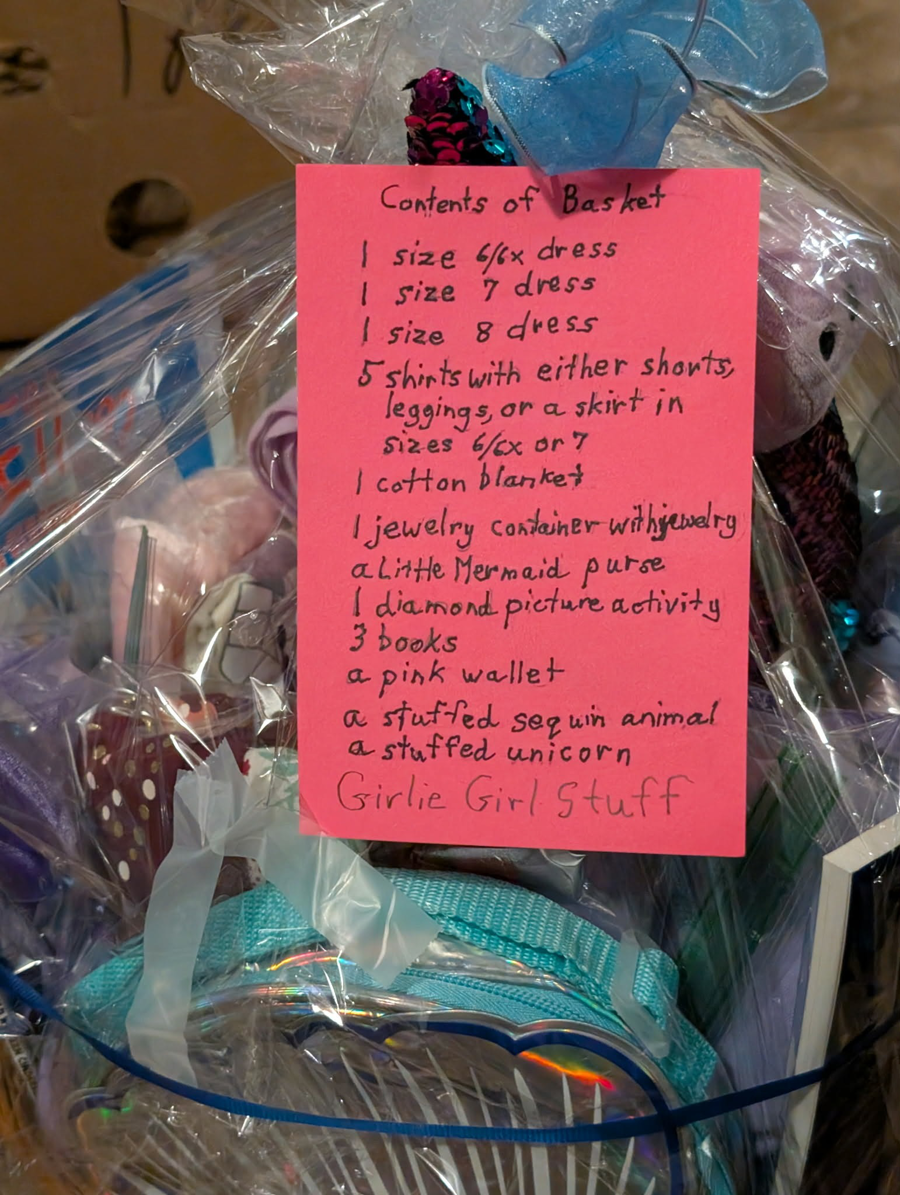 Contents of Basket
1 size 6/6x dress
1 size 7 dress
1 size 8 dress
5 shirts with either shorts,
leggings, or a skirt in
sizes 6/6x or 7
1 cotton blanket
1 jewelry container with jewelry
a Little Mermaid purse
1 diamond picture activity
3 books
a pink wallet
a stuffed sequin animal
a stuffed unicorn
Girlie Girl Stuff